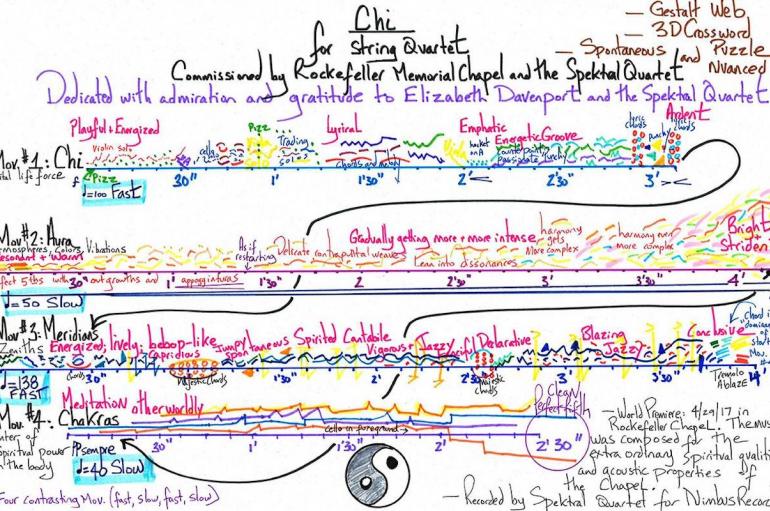 Chi
for String Quartet
— Gestalt Web
— 3D Crossword Puzzle
— Spontaneous and Nuanced
Commissioned by Rockefeller Memorial Chapel and the Spektral Quartet
Dedicated with admiration and gratitude to Elizabeth Davenport and the Spektral Quartet
Playful + Energized
Violin solo
cells
Pizz
Trading solos
Lyrical
Chords and melody
Emphatic
Energetic Groove
Passionate
punchy
lyric chords
Ardent
Mov. #1: Chi
life force
f
Pizz
♩=100 Fast
30" 1' 1'30" 2' 2'30" 3'
Mov #2: Aura
Colors, Vibrations
Resonant + Warm
As if restarting
Delicate contrapuntal weaves
Gradually getting more + more intense
Lean into dissonances
harmony gets more complex
harmony even more complex
Bright
5ths with outgrowths and appoggiaturas
30" 1' 1'30" 2 2'30" 3' 3'30" 4'
♩=50 Slow
Mov #3: Meridians
Zeniths
Energized, lively, bebop-like
Capricious
Majestic chords
Jumpy
Spontaneous
Spirited Cantabile
Vigorous
Jazzy
Declarative
Majestic chords
Blazing
Jazzy
Conclusive
Tremolo
Ablaze
chords
30" 1' 1'30" 2' 2'30" 3' 3'30" 4'
♩=138 FAST
Mov. #4: Chakras
Meditation otherworldly
of
spiritual power
the body
cello in foreground →
Cleanly
Perfect fifth
PP sempre
♩=40 Slow
30" 1' 1'30" 2' 2'30"
Four contrasting Mov. (fast, slow, fast, slow)
— World Premiere: 4/29/17 in
Rockefeller Chapel. The
was composed for the
extra ordinary spiritual
and acoustic properties of
the Chapel.
— Recorded by Spektral Quartet for Nimbus